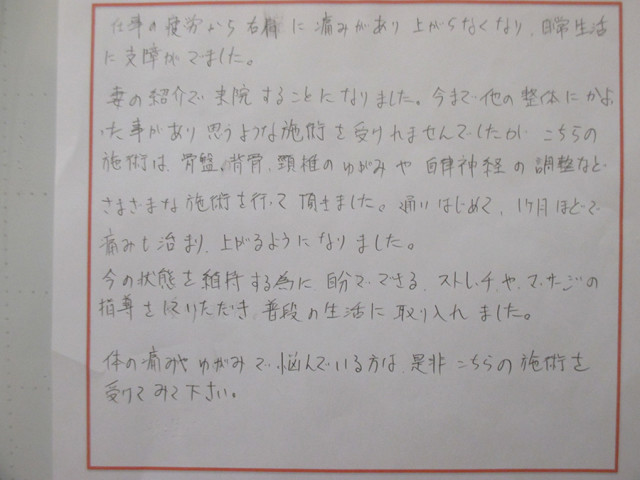 仕事の疲労から右肩に痛みがあり上がらなくなり、日常生活
に支障がでました。
妻の紹介で来院することになりました。今まで他の整体にかよ
った事があり思うような施術を受けれませんでしたが こちらの
施術は、骨盤、背骨、頸椎のゆがみや自律神経の調整など
さまざまな施術を行って頂きました。通いはじめて、1ヶ月ほどで
痛みも治まり、上がるようになりました。
今の状態を維持する為に自分でできる、ストレッチや、マッサージの
指導をしていただき、普段の生活に取り入れました。
体の痛みやゆがみで悩んでいる方は、是非こちらの施術を
受けてみて下さい。